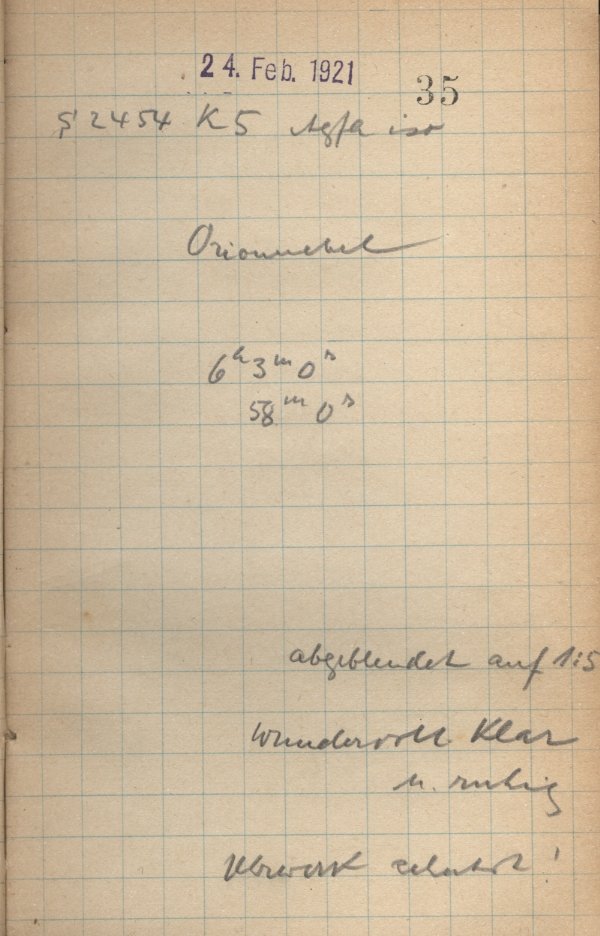 24. Feb. 1921
35
2454 K5 Agfa iso
Orionnebel
6h 3m 0s
58m 0s
abgeblendet auf 1:5
wundervoll klar
u. ruhig
Uhrwerk